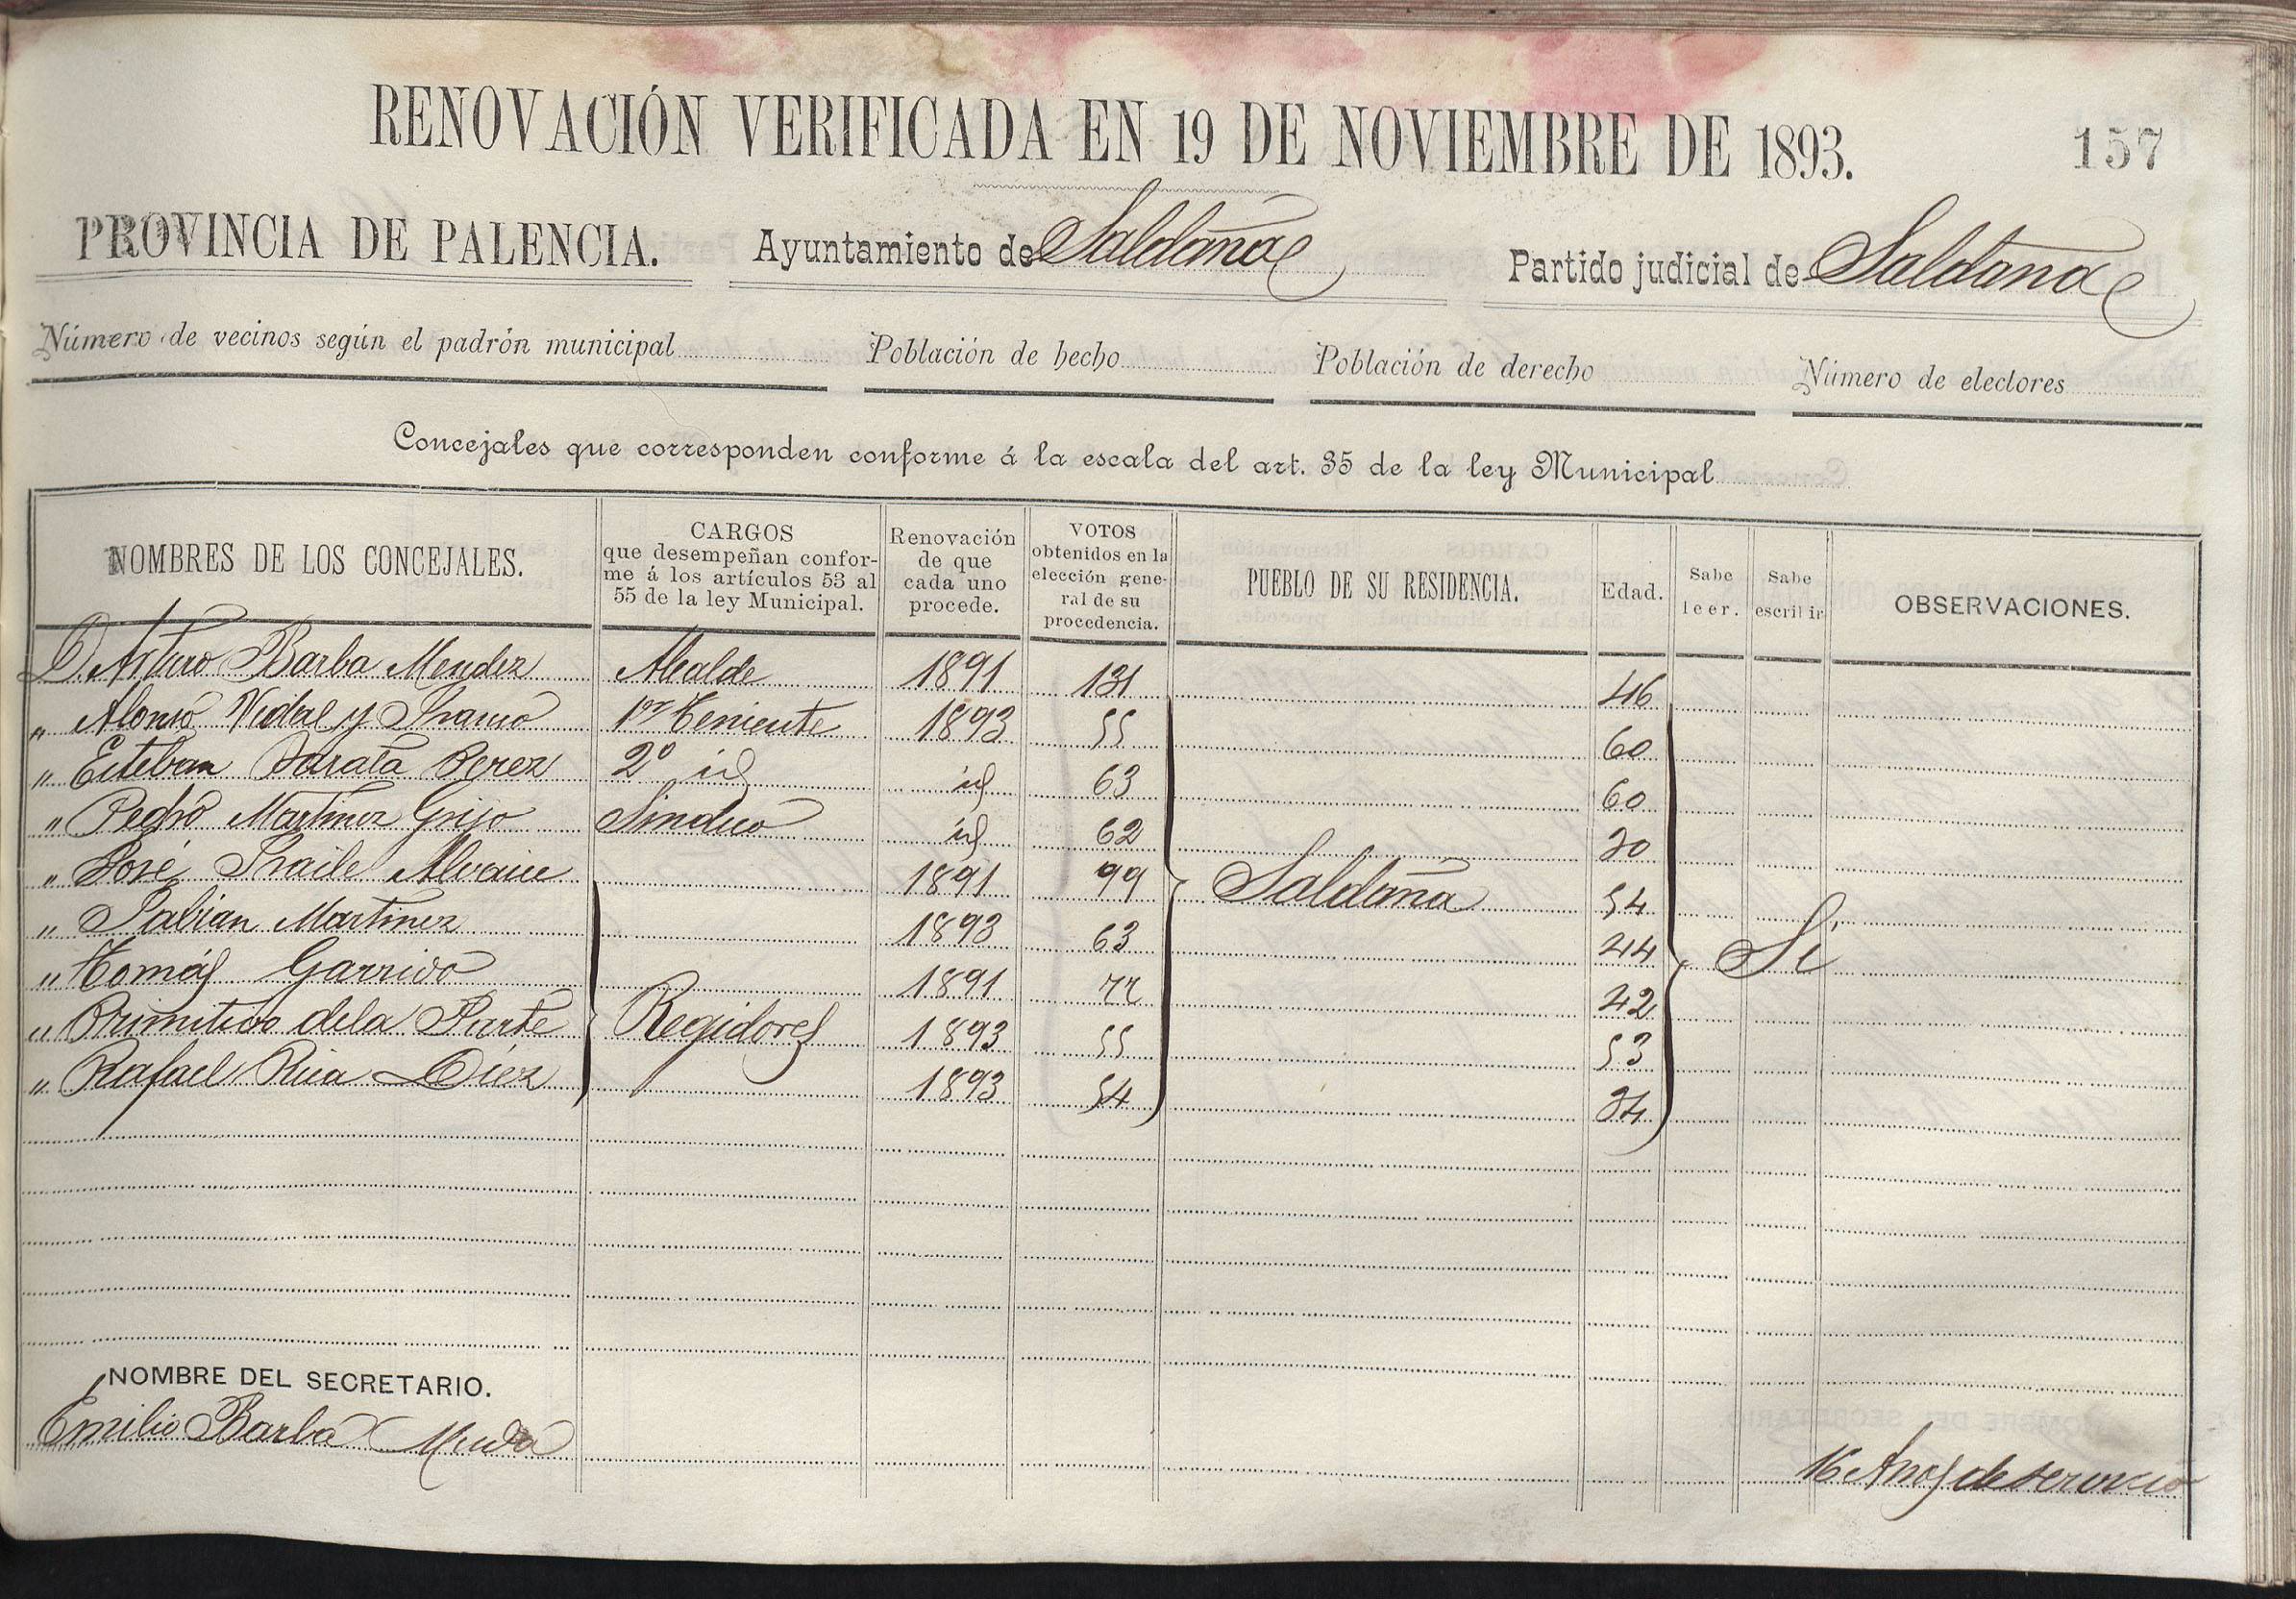 RENOVACIÓN VERIFICADA EN 19 DE NOVIEMBRE DE 1893.
157
PROVINCIA DE PALENCIA. Ayuntamiento de Saldaña Partido judicial de Saldaña
Número de vecinos según el padrón municipal Población de hecho Población de derecho Número de electores
Concejales que corresponden conforme á la escala del art. 35 de la ley Municipal
NOMBRES DE LOS CONCEJALES.
CARGOS
que desempeñan confor-
me á los artículos 53 al
55 de la ley Municipal.
Renovación
de que
cada uno
procede.
VOTOS
obtenidos en la
elección gene-
ral de su
procedencia.
PUEBLO DE SU RESIDENCIA.
Edad.
Sabe
leer.
Sabe
escribir
OBSERVACIONES.
D. Arturo Barba Mendez Alcalde 1891 131 46
" Alonso Vidal y 1er Teniente 1893 55 60
" Esteban Perez 2º id id 63 60
" Pedro Martinez Grijo Sindico id 62 30
" José Fraile 1891 99 Saldaña 54
" Fabian Martinez 1893 63 44 Si
" Tomás Garrido 1891 77 42
" Primitivo de la Parte Regidores 1893 55 53
" Rafael Diez 1893 54 34
NOMBRE DEL SECRETARIO.
Emilio Barba
16 Años de servicio